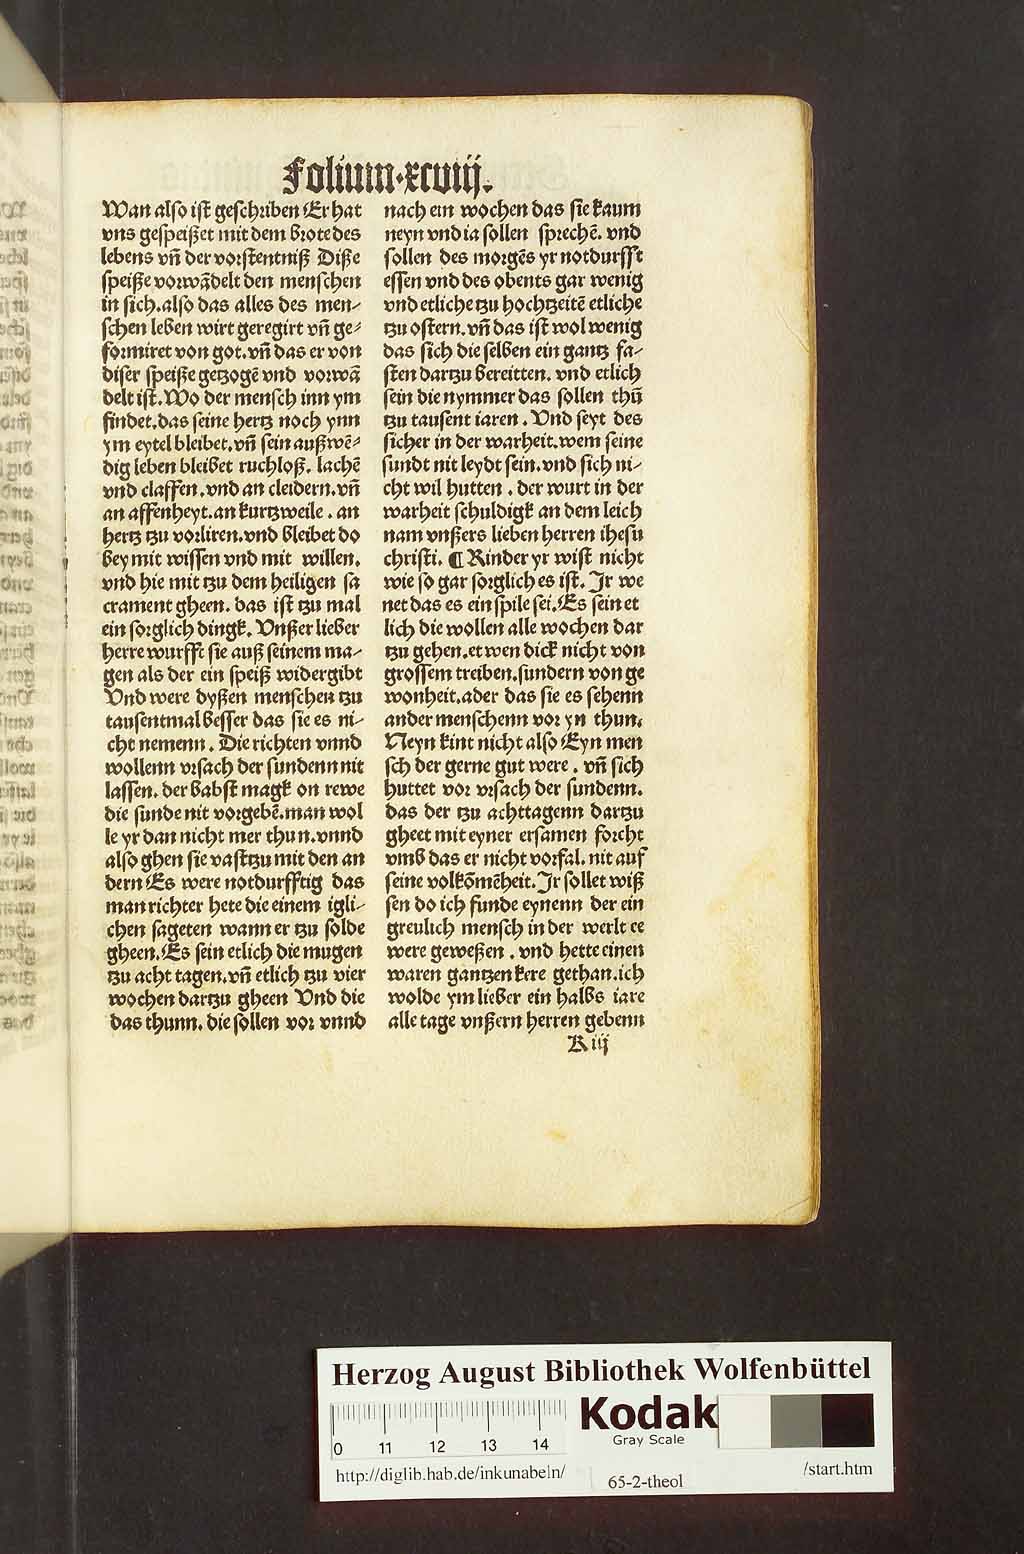 Folium·xcviij.
Wan also ist geschriben Er hat
vns gespeißet mit dem brote des
lebens vn̄ der vorstentniß Diße
speiße vorwādelt den menschen
in sich. also das alles des men⸗
schen leben wirt geregirt vn̄ ge⸗
formiret von got. vn̄ das er von
diser speiße getzogē vnd vorwā
delt ist. Wo der mensch inn ym
findet. das seine hertz noch ynn
ym eytel bleibet. vn̄ sein außwē⸗
dig leben bleibet ruchloß. lachē
vnd claffen. vnd an cleidern. vn̄
an affenheyt. an kurtzweile. an
hertz tzu vorliren. vnd bleibet do
bey mit wissen vnd mit willen.
vnd hie mit tzu dem heiligen sa
crament gheen. das ist tzu mal
ein sorglich dingk. Vnßer lieber
herre wurfft sie auß seinem ma⸗
gen als der ein speiß widergibt
Vnd were dyßen menschen tzu
tausentmal besser das sie es ni⸗
cht nemenn. Die richten vnnd
wollenn vrsach der sundenn nit
lassen. der babst magk on rewe
die sunde nit vorgebē. man wol
le yr dan nicht mer thun. vnnd
also ghen sie vasttzu mit den an
dern Es were notdurfftig das
man richter hete die einem igli⸗
chen sageten wann er tzu solde
gheen. Es sein etlich die mugen
tzu acht tagen. vn̄ etlich tzu vier
wochen dartzu gheen Vnd die
das thunn. die sollen vor vnnd
nach ein wochen das sie kaum
neyn vnd ia sollen sprechē. vnd
sollen des morgēs yr notdursst
essen vnd des obents gar wenig
vnd etliche tzu hochtzeitē etliche
tzu ostern. vn̄ das ist wol wenig
das sich die selben ein gantz fa⸗
sten dartzu bereitten. vnd etlich
sein die nymmer das sollen thū
tzu tausent iaren. Vnd seyt des
sicher in der warheit. wem seine
sundt nit leydt sein. vnd sich ni⸗
cht wil hutten. der wurt in der
warheit schuldigk an dem leich
nam vnßers lieben herren ihesu
christi. ¶ Kinder yr wist nicht
wie so gar sorglich es ist. Ir we
net das es ein spile sei. Es sein et
lich die wollen alle wochen dar
tzu gehen. et wen dick nicht von
grossem treiben. sundern von ge
wonheit. ader das sie es sehenn
ander menschenn vor yn thun.
Neyn kint nicht also Eyn men
sch der gerne gut were. vn̄ sich
huttet vor vrsach der sundenn.
das der tzu achttagenn dartzu
gheet mit eyner ersamen forcht
vmb das er nicht vorfal. nit auf
seine volkōmēheit. Ir sollet wiß
sen do ich funde eynenn der ein
greulich mensch in der werlt ee
were geweßen. vnd hette einen
waren gantzen kere gethan. ich
wolde ym lieber ein halbs iare
alle tage vnßern herren gebenn
R iij
Herzog August Bibliothek Wolfenbüttel
Kodak
Gray Scale
0 11 12 13 14
http://diglib.hab.de/inkunabeln/
65-2-theol
/start.htm